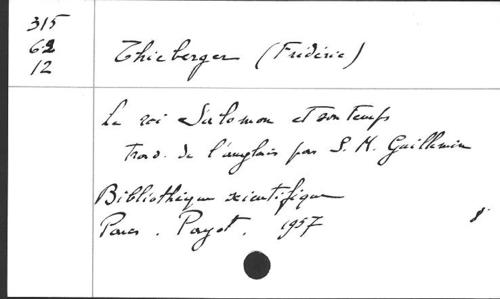 315
62
12
Thieberger (Frédéric)
Le roi Salomon et son temps
trad. de l'anglais par S. M. Guillemin
Bibliothèque scientifique
Paris. Payot. 1957
8°